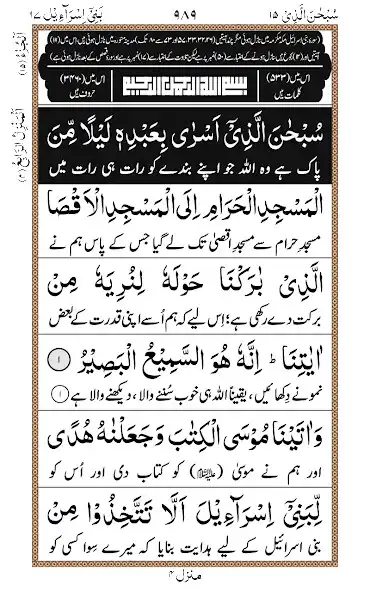 سُبْحٰنَ الَّذِیْۤ ۱۵
۹۸۹
بَنِیْۤ اِسْرَآءِیْل ۱۷
اس میں (۵۳۳) کلمات ہیں
بِسْمِ اللّٰهِ الرَّحْمٰنِ الرَّحِیْمِ
اس میں (۳۴۶۰) حروف ہیں
سُبْحٰنَ الَّذِیْۤ اَسْرٰی بِعَبْدِهٖ لَیْلًا مِّنَ
پاک ہے وہ اللہ جو اپنے بندے کو رات ہی رات میں
الْمَسْجِدِ الْحَرَامِ اِلَی الْمَسْجِدِ الْاَقْصَا
مسجدِ حرام سے مسجدِ اقصیٰ تک لے گیا جس کے پاس ہم نے
الَّذِیْ بٰرَكْنَا حَوْلَهٗ لِنُرِیَهٗ مِنْ
برکت دے رکھی ہے؛ اس لیے کہ ہم اُسے اپنی قدرت کے بعض
اٰیٰتِنَا ؕ اِنَّهٗ هُوَ السَّمِیْعُ الْبَصِیْرُ ۱
نمونے دِکھائیں، یقیناً اللہ ہی خوب سُننے والا، دیکھنے والا ہے ۱
وَاٰتَیْنَا مُوْسَی الْكِتٰبَ وَجَعَلْنٰهُ هُدًی
اور ہم نے موسیٰ (علیہ السلام) کو کتاب دی اور اُس کو
لِّبَنِیْۤ اِسْرَآءِیْلَ اَلَّا تَتَّخِذُوْا مِنْ
بنی اسرائیل کے لیے ہدایت بنایا کہ میرے سِوا کسی کو
منزل ۴